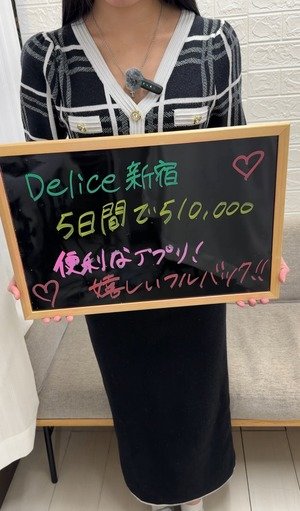 Delice新宿
5日間で510,000
便利なアプリ!
嬉しいフルバック!!